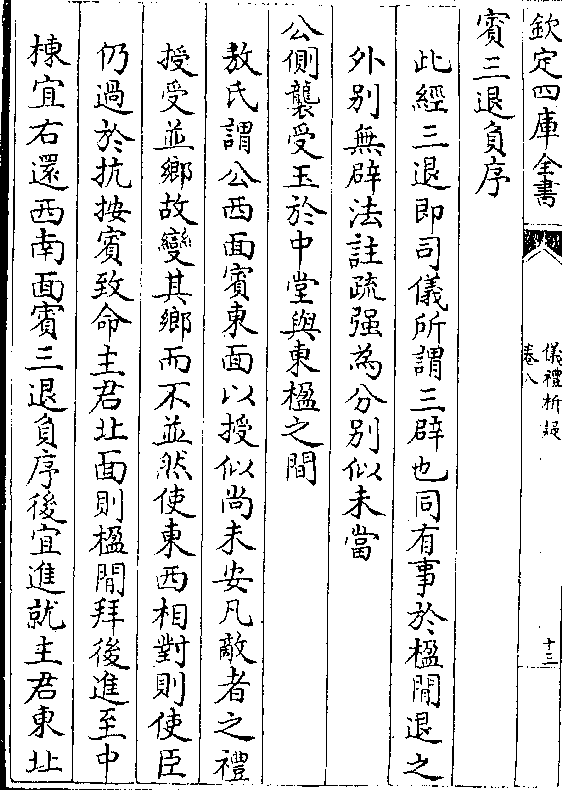 欽定四庫全書
儀禮析疑
卷八
十三
賓三退負序
此經三退即司儀所謂三辟也同有事於楹閒退之
外别無辟法註疏强為分别似未當
公側襲受玉於中堂與東楹之間
敖氏謂公西面賓東面以授似尚未安凡敵者之禮
授受並鄉故變其鄉而不並然使東西相對則使臣
仍過於抗按賓致命主君北面則楹閒拜後進至中
棟宜右還西南面賓三退負序後宜進就主君東北